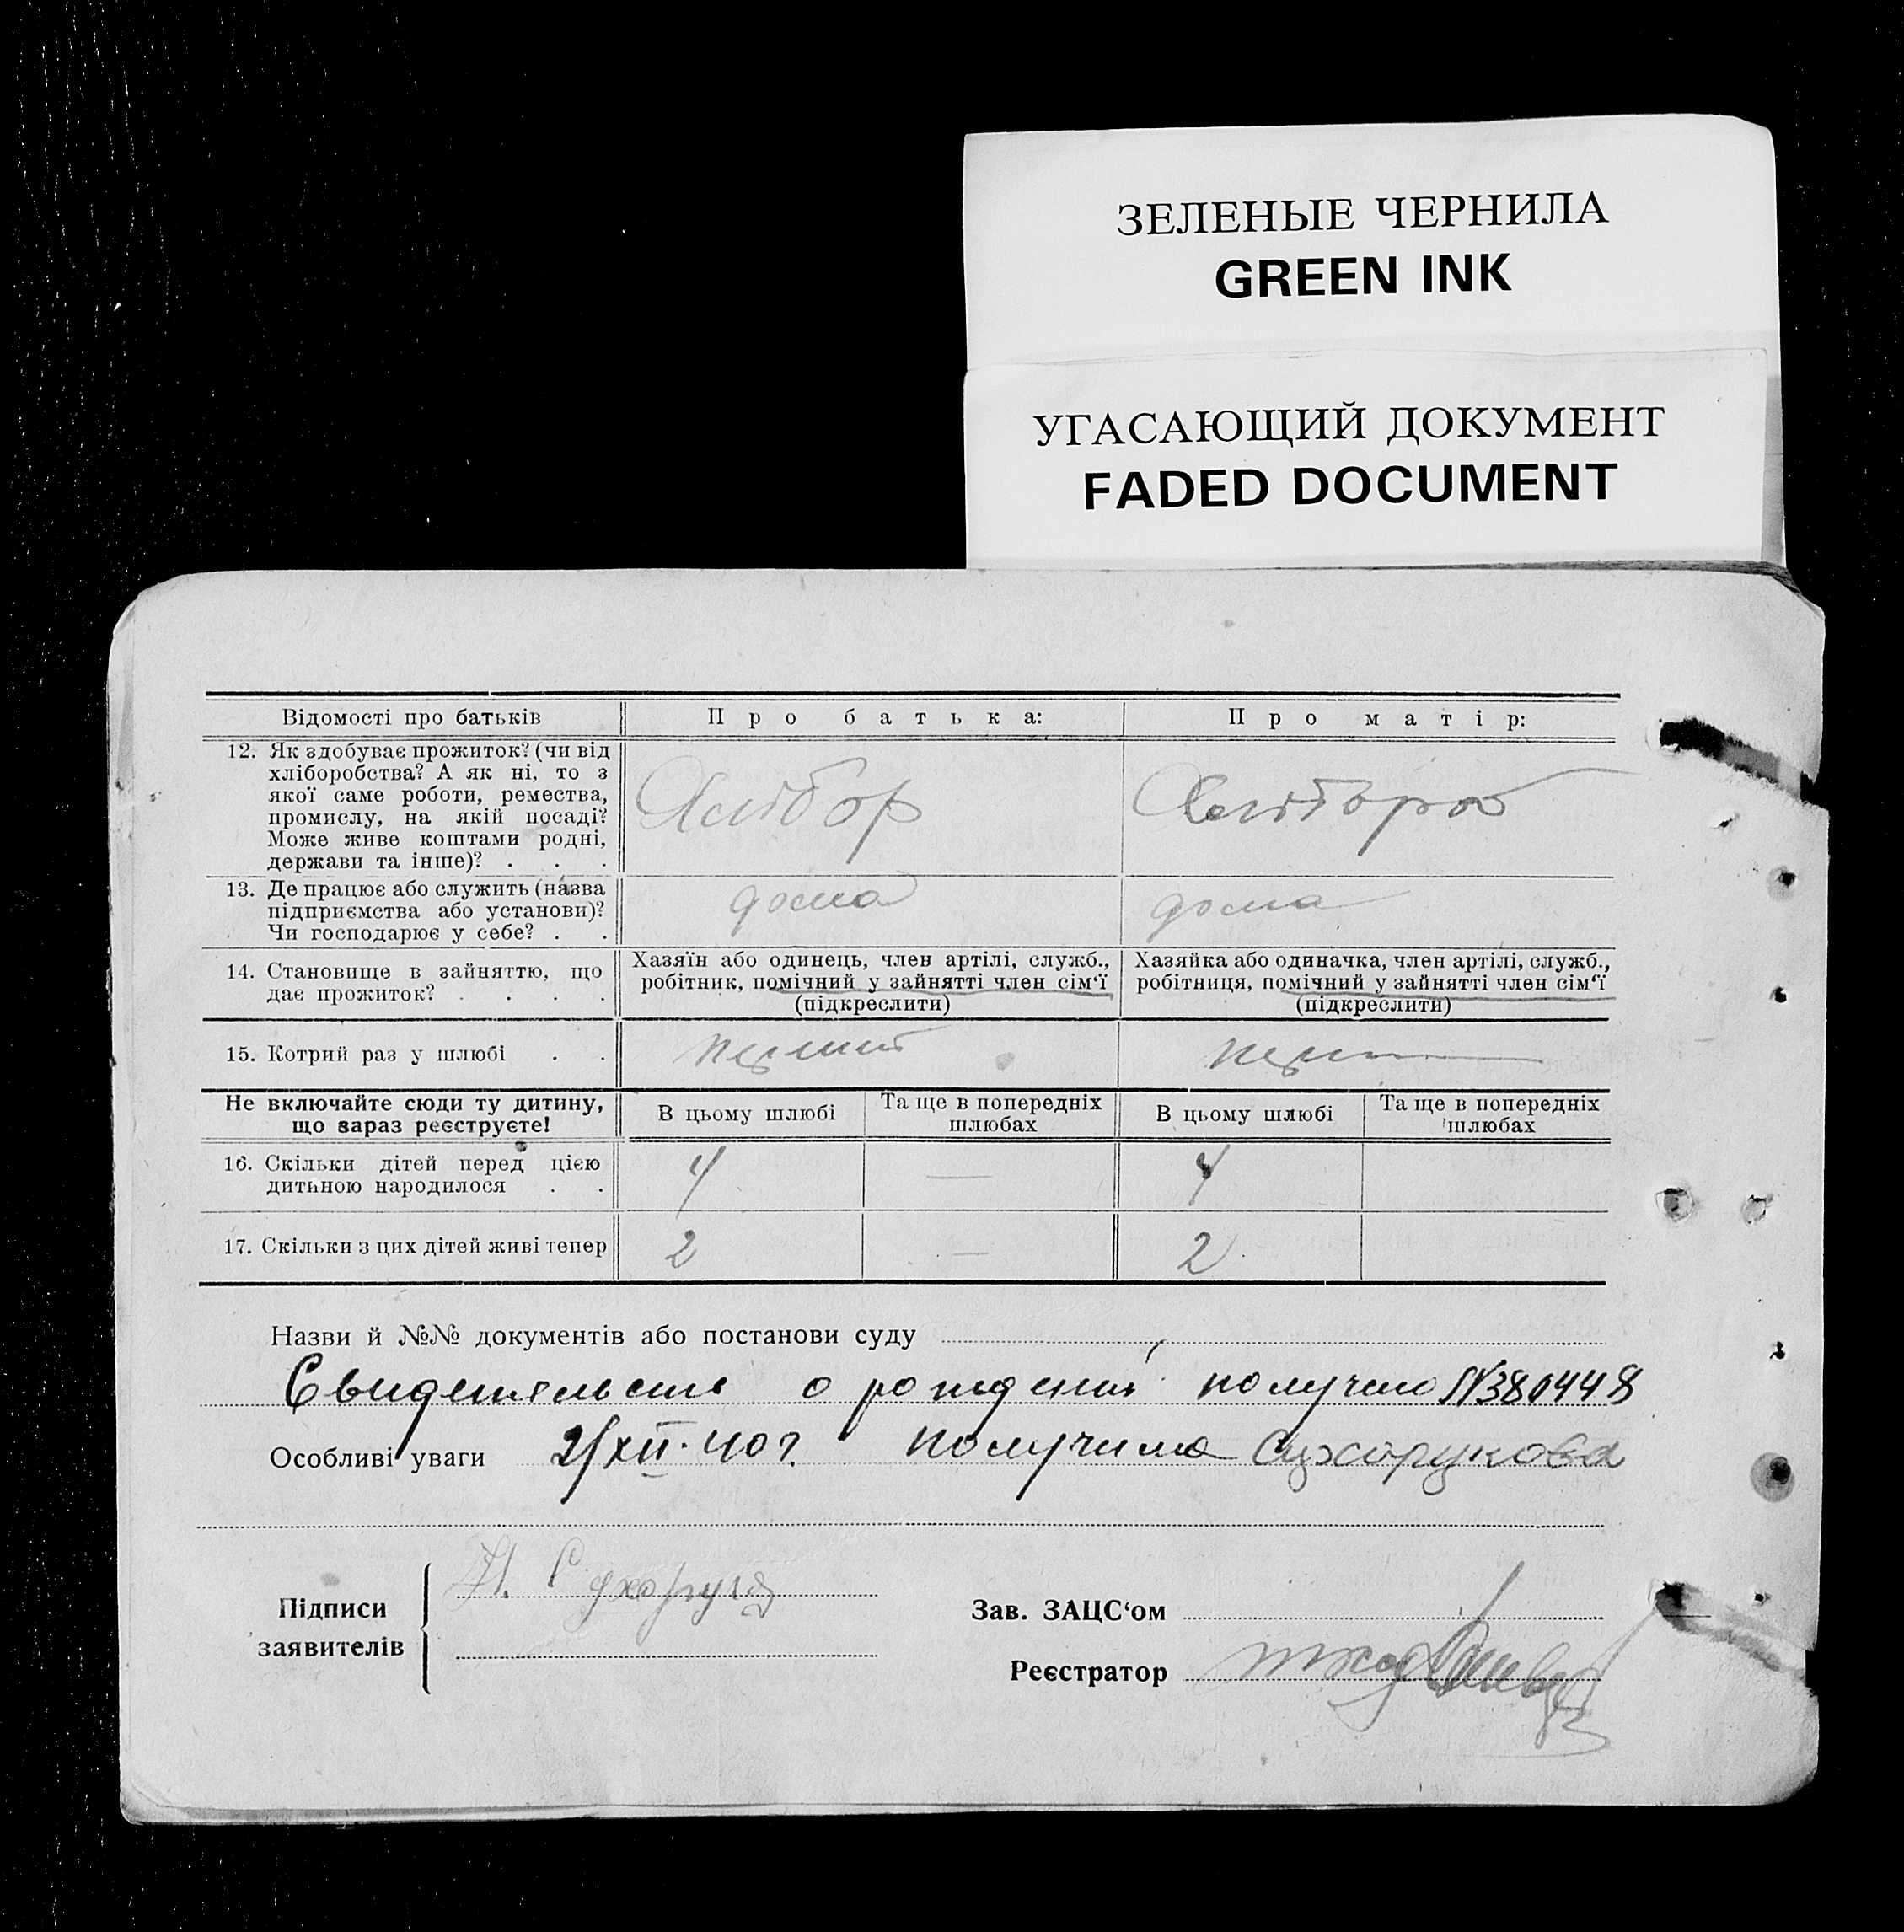 ЗЕЛЕНЫЕ ЧЕРНИЛА
GREEN INK
УГАСАЮЩИЙ ДОКУМЕНТ
FADED DOCUMENT
Відомості про батьків
Про батька:
Про матір:
12. Як здобуває прожиток? (чи від
хліборобства? А як ні, то з
якої саме роботи, ремества,
промислу, на якій посаді?
Може живе коштами родні,
держави та інше)? . . .
Хлібор
Хлібороб
13. Де працює або служить (назва
підприємства або установи)?
Чи господарює у себе? . .
дома
дома
14. Становище в зайняттю, що
дає прожиток? . . . .
Хазяїн або одинець, член артілі, служб.,
робітник, помічний у зайнятті член сім‘ї
(підкреслити)
Хазяйка або одиначка, член артілі, служб.,
робітниця, помічний у зайнятті член сім‘ї
(підкреслити)
15. Котрий раз у шлюбі . .
перший
Не включайте сюди ту дитину,
що зараз реєструєте!
В цьому шлюбі
Та ще в попередніх
шлюбах
В цьому шлюбі
Та ще в попередніх
шлюбах
16. Скільки дітей перед цією
дитиною народилося . .
4
—
4
17. Скільки з цих дітей живі тепер
2
—
2
Назви й №№ документів або постанови суду
Свидетельство о рождении получено №380448
Особливі уваги 2/XII·40г. получила Сухорукова
Підписи
заявителів
Н. Сухорук
Зав. ЗАЦС‘ом
Реєстратор